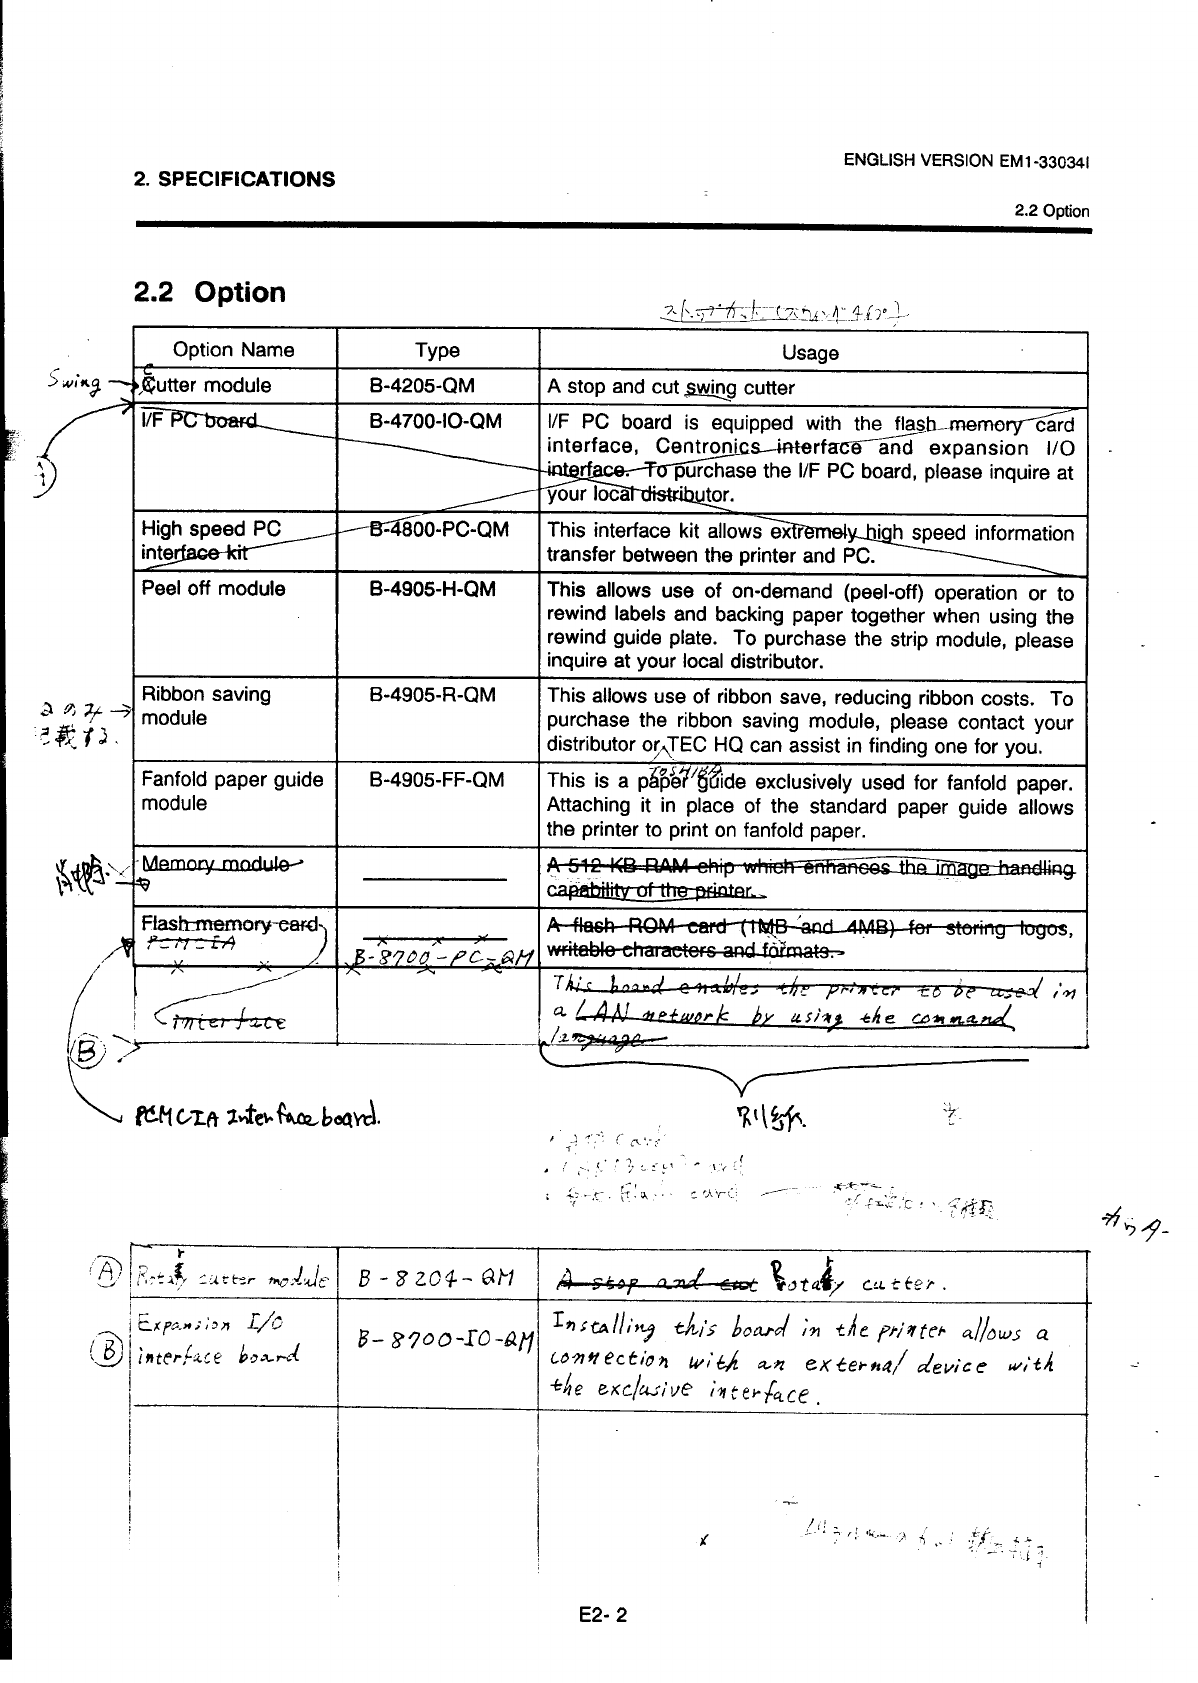 ENGLISH VERSION EM1-33034I
2. SPECIFICATIONS
2.2 Option
2.2 Option
Option Name Type Usage
Swing
Cutter module B-4205-QM A stop and cut swing cutter
I/F PC board B-4700-IO-QM I/F PC board is equipped with the flash memory card
interface, Centronics interface and expansion I/O
interface. To purchase the I/F PC board, please inquire at
your local distributor.
High speed PC B-4800-PC-QM This interface kit allows extremely high speed information
interface kit transfer between the printer and PC.
Peel off module B-4905-H-QM This allows use of on-demand (peel-off) operation or to
rewind labels and backing paper together when using the
rewind guide plate. To purchase the strip module, please
inquire at your local distributor.
Ribbon saving B-4905-R-QM This allows use of ribbon save, reducing ribbon costs. To
module purchase the ribbon saving module, please contact your
記載する.
distributor or TEC HQ can assist in finding one for you.
TOSHIBA
Fanfold paper guide B-4905-FF-QM This is a paper guide exclusively used for fanfold paper.
module Attaching it in place of the standard paper guide allows
the printer to print on fanfold paper.
削除
Memory module A 512 KB RAM chip which enhances the image handling
capability of the printer.
Flash memory card A flash ROM card (1MB and 4MB) for storing logos,
PCMCIA writable characters and formats.
B-8700-PC-QM
This board enables the printer to be used in
interface a LAN network by using the command
B language
PCMCIA Interface board.
別紙
A Rotary cutter module B-8204-QM A stop and cut Rotary cutter.
B Expansion I/O interface board B-8700-IO-QM Installing this board in the printer allows a
connection with an external device with
the exclusive interface.
E2- 2